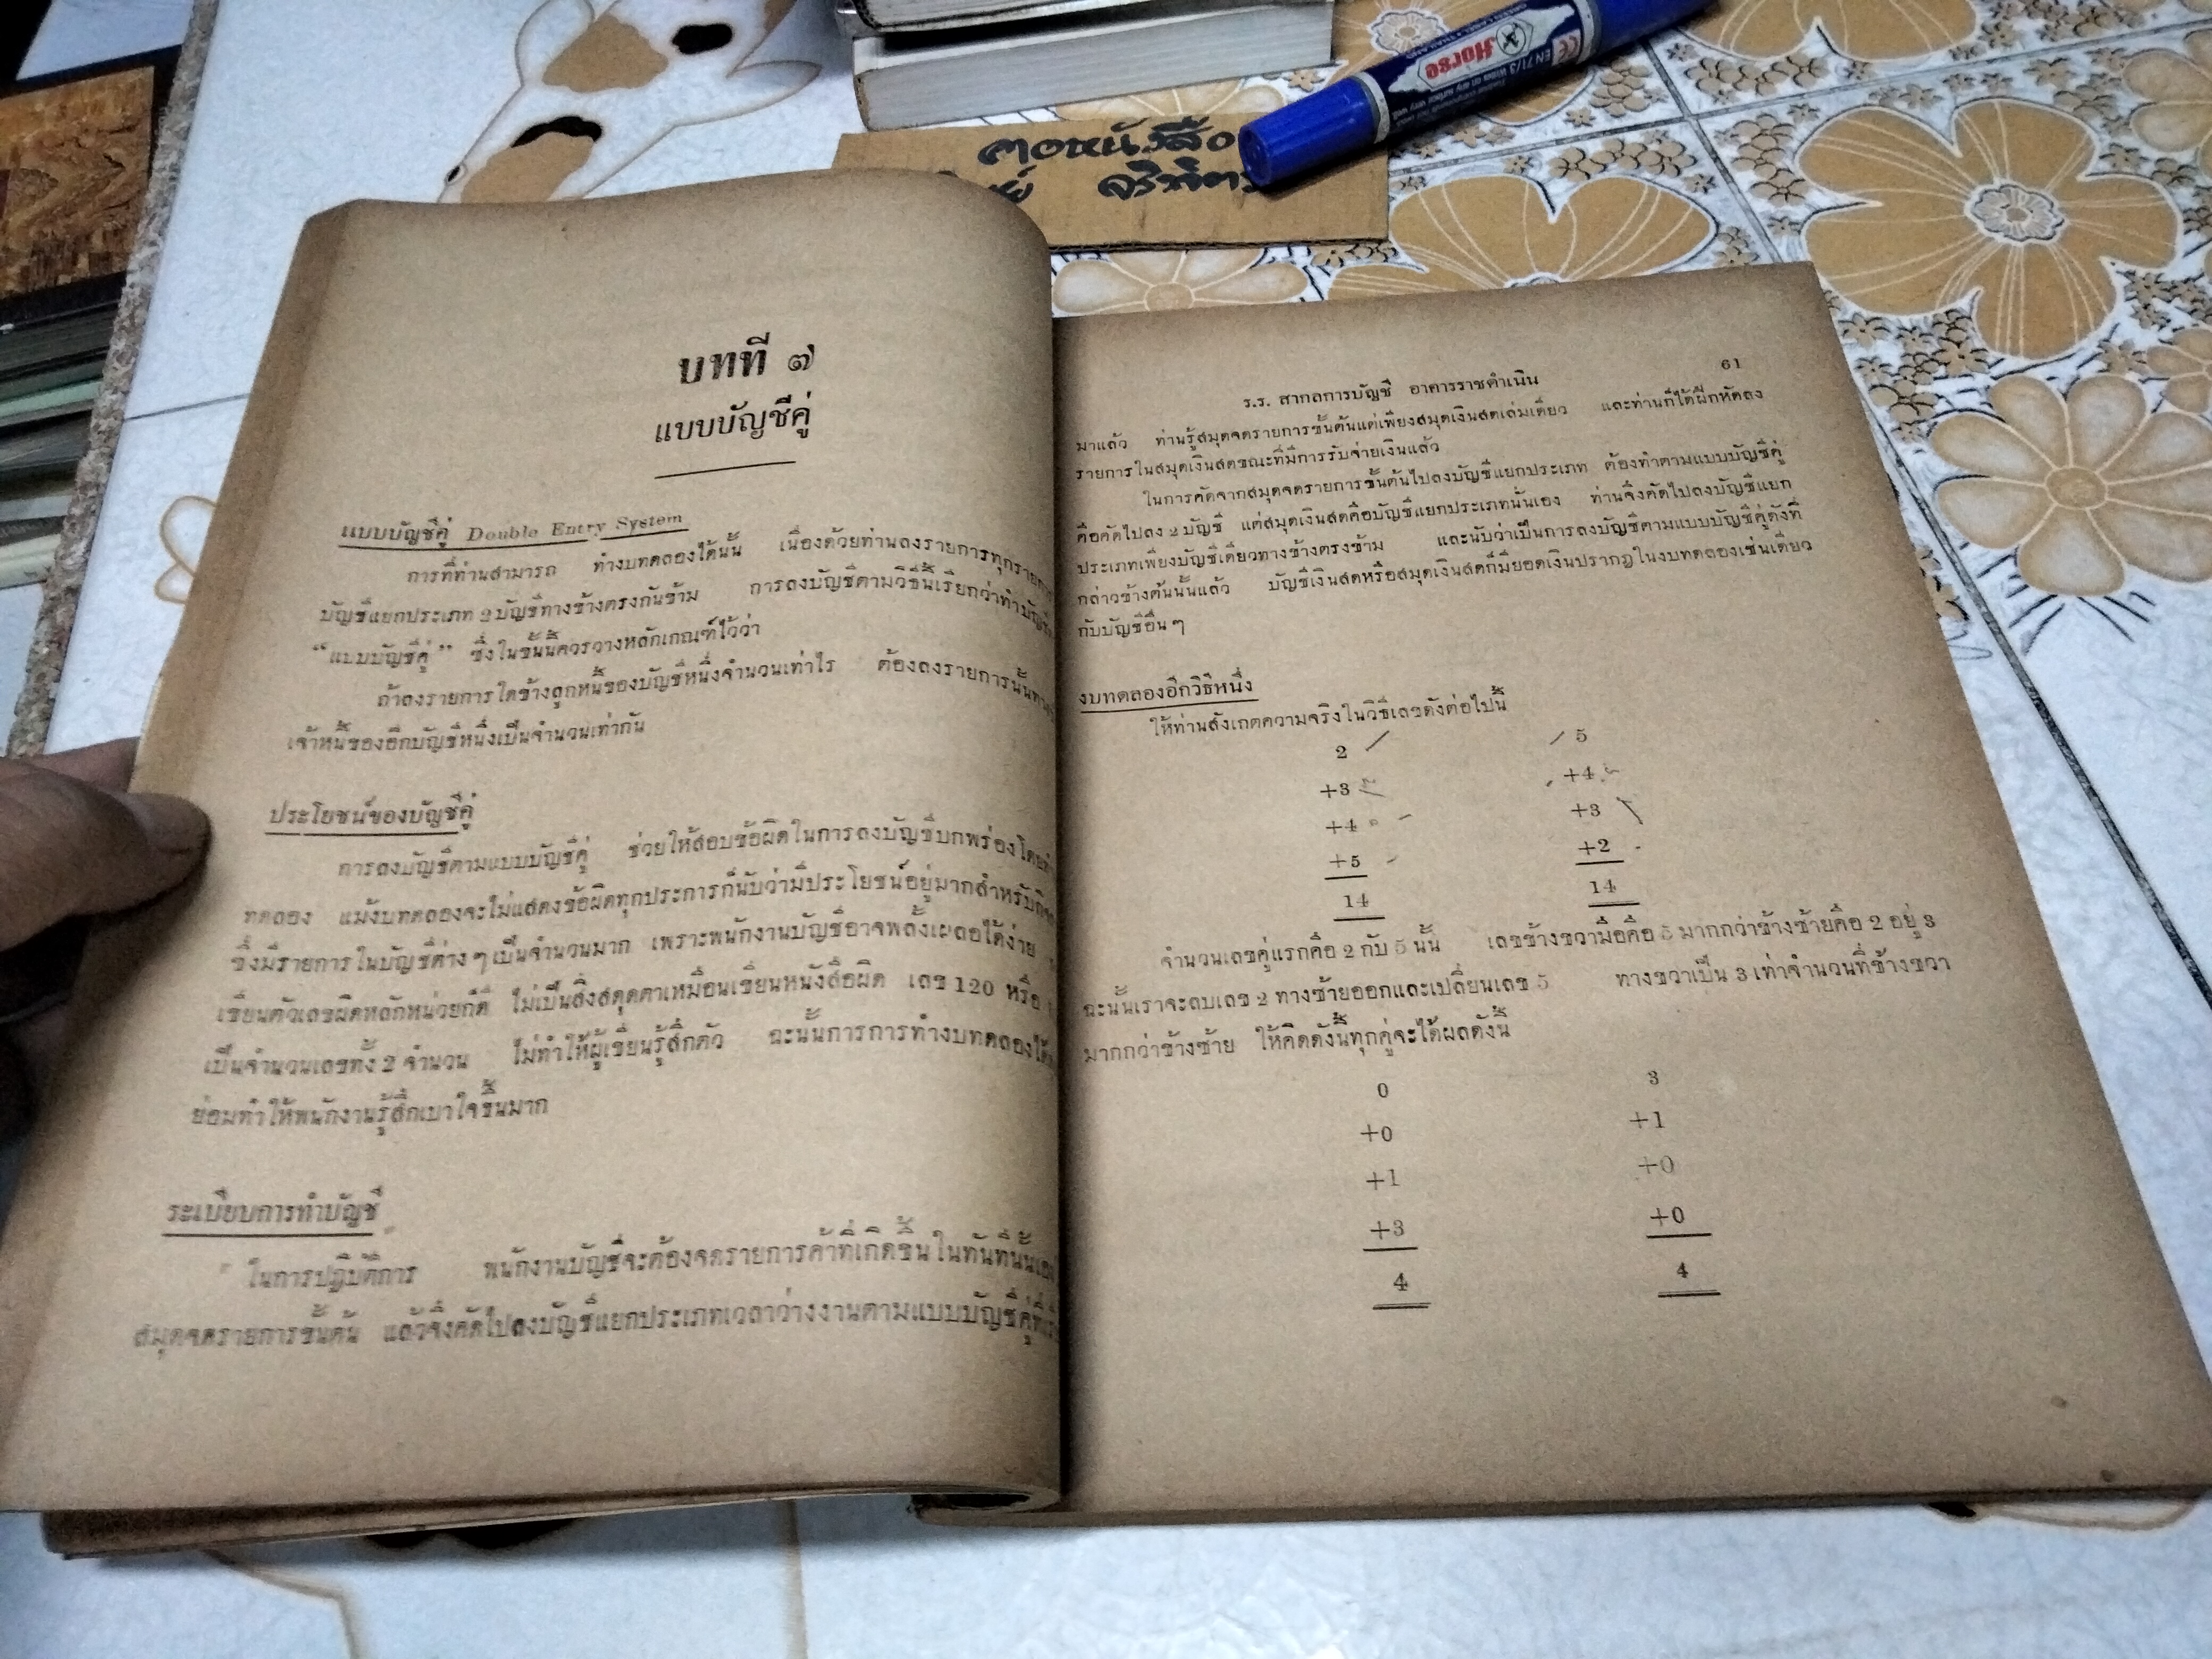 Horse
EN71/3
คอหนังสือ
บทที่ ๗
แบบบัญชีคู่
แบบบัญชีคู่ Double Entry System
การที่ท่านสามารถ ทำงบทดลองได้นั้น เนื่องด้วยท่านลงรายการทุกรายการ
บัญชีแยกประเภท 2 บัญชีทางข้างตรงกันข้าม การลงบัญชีตามวิธีนี้เรียกว่าทำบัญชี
“แบบบัญชีคู่” ซึ่งในชั้นนี้ควรวางหลักเกณฑ์ไว้ว่า
ถ้าลงรายการใดข้างลูกหนี้ของบัญชีหนึ่งจำนวนเท่าไร ต้องลงรายการนั้นทาง
เจ้าหนี้ของอีกบัญชีหนึ่งเป็นจำนวนเท่ากัน
ประโยชน์ของบัญชีคู่
การลงบัญชีตามแบบบัญชีคู่ ช่วยให้สอบข้อผิดในการลงบัญชีบกพร่องโดย
ทดลอง แม้งบทดลองจะไม่แสดงข้อผิดทุกประการก็นับว่ามีประโยชน์อยู่มากสำหรับ
ซึ่งมีรายการในบัญชีต่าง ๆ เป็นจำนวนมาก เพราะพนักงานบัญชีอาจพลั้งเผลอได้ง่าย
เขียนตัวเลขผิดหลักหน่วยก็ดี ไม่เป็นสิ่งสดุดตาเหมือนเขียนหนังสือผิด เลข 120 หรือ
เป็นจำนวนเลขทั้ง 2 จำนวน ไม่ทำให้ผู้เขียนรู้สึกตัว ฉะนั้นการการทำงบทดลองได้
ย่อมทำให้พนักงานรู้สึกเบาใจขึ้นมาก
ระเบียบการทำบัญชี
ในการปฏิบัติการ พนักงานบัญชีจะต้องจดรายการค้าที่เกิดขึ้นในทันทีนั้น
สมุดจดรายการขั้นต้น แล้วจึงคัดไปลงบัญชีแยกประเภทเวลาว่างงานตามแบบบัญชีคู่
61
ร.ร. สากลการบัญชี อาคารราชดำเนิน
มาแล้ว ท่านรู้สมุดจดรายการขั้นต้นแต่เพียงสมุดเงินสดเล่มเดียว และท่านก็ได้ฝึกหัดลง
รายการในสมุดเงินสดขณะที่มีการรับจ่ายเงินแล้ว
ในการคัดจากสมุดจดรายการขั้นต้นไปลงบัญชีแยกประเภท ต้องทำตามแบบบัญชีคู่
คือคัดไปลง 2 บัญชี แต่สมุดเงินสดคือบัญชีแยกประเภทนั่นเอง ท่านจึงคัดไปลงบัญชีแยก
ประเภทเพียงบัญชีเดียวทางข้างตรงข้าม และนับว่าเป็นการลงบัญชีตามแบบบัญชีคู่ดังที่
กล่าวข้างต้นนั้นแล้ว บัญชีเงินสดหรือสมุดเงินสดก็มียอดเงินปรากฏในงบทดลองเช่นเดียว
กับบัญชีอื่น ๆ
งบทดลองอีกวิธีหนึ่ง
ให้ท่านสังเกตความจริงในวิธีเลขดังต่อไปนี้
2 5
+3 +4
+4 +3
+5 +2
14 14
จำนวนเลขคู่แรกคือ 2 กับ 5 นั้น เลขข้างขวามือคือ 5 มากกว่าข้างซ้ายคือ 2 อยู่ 3
ฉะนั้นเราจะลบเลข 2 ทางซ้ายออกและเปลี่ยนเลข 5 ทางขวาเป็น 3 เท่าจำนวนที่ข้างขวา
มากกว่าข้างซ้าย ให้คิดดังนี้ทุกคู่จะได้ผลดังนี้
0 3
+0 +1
+1 +0
+3 +0
4 4